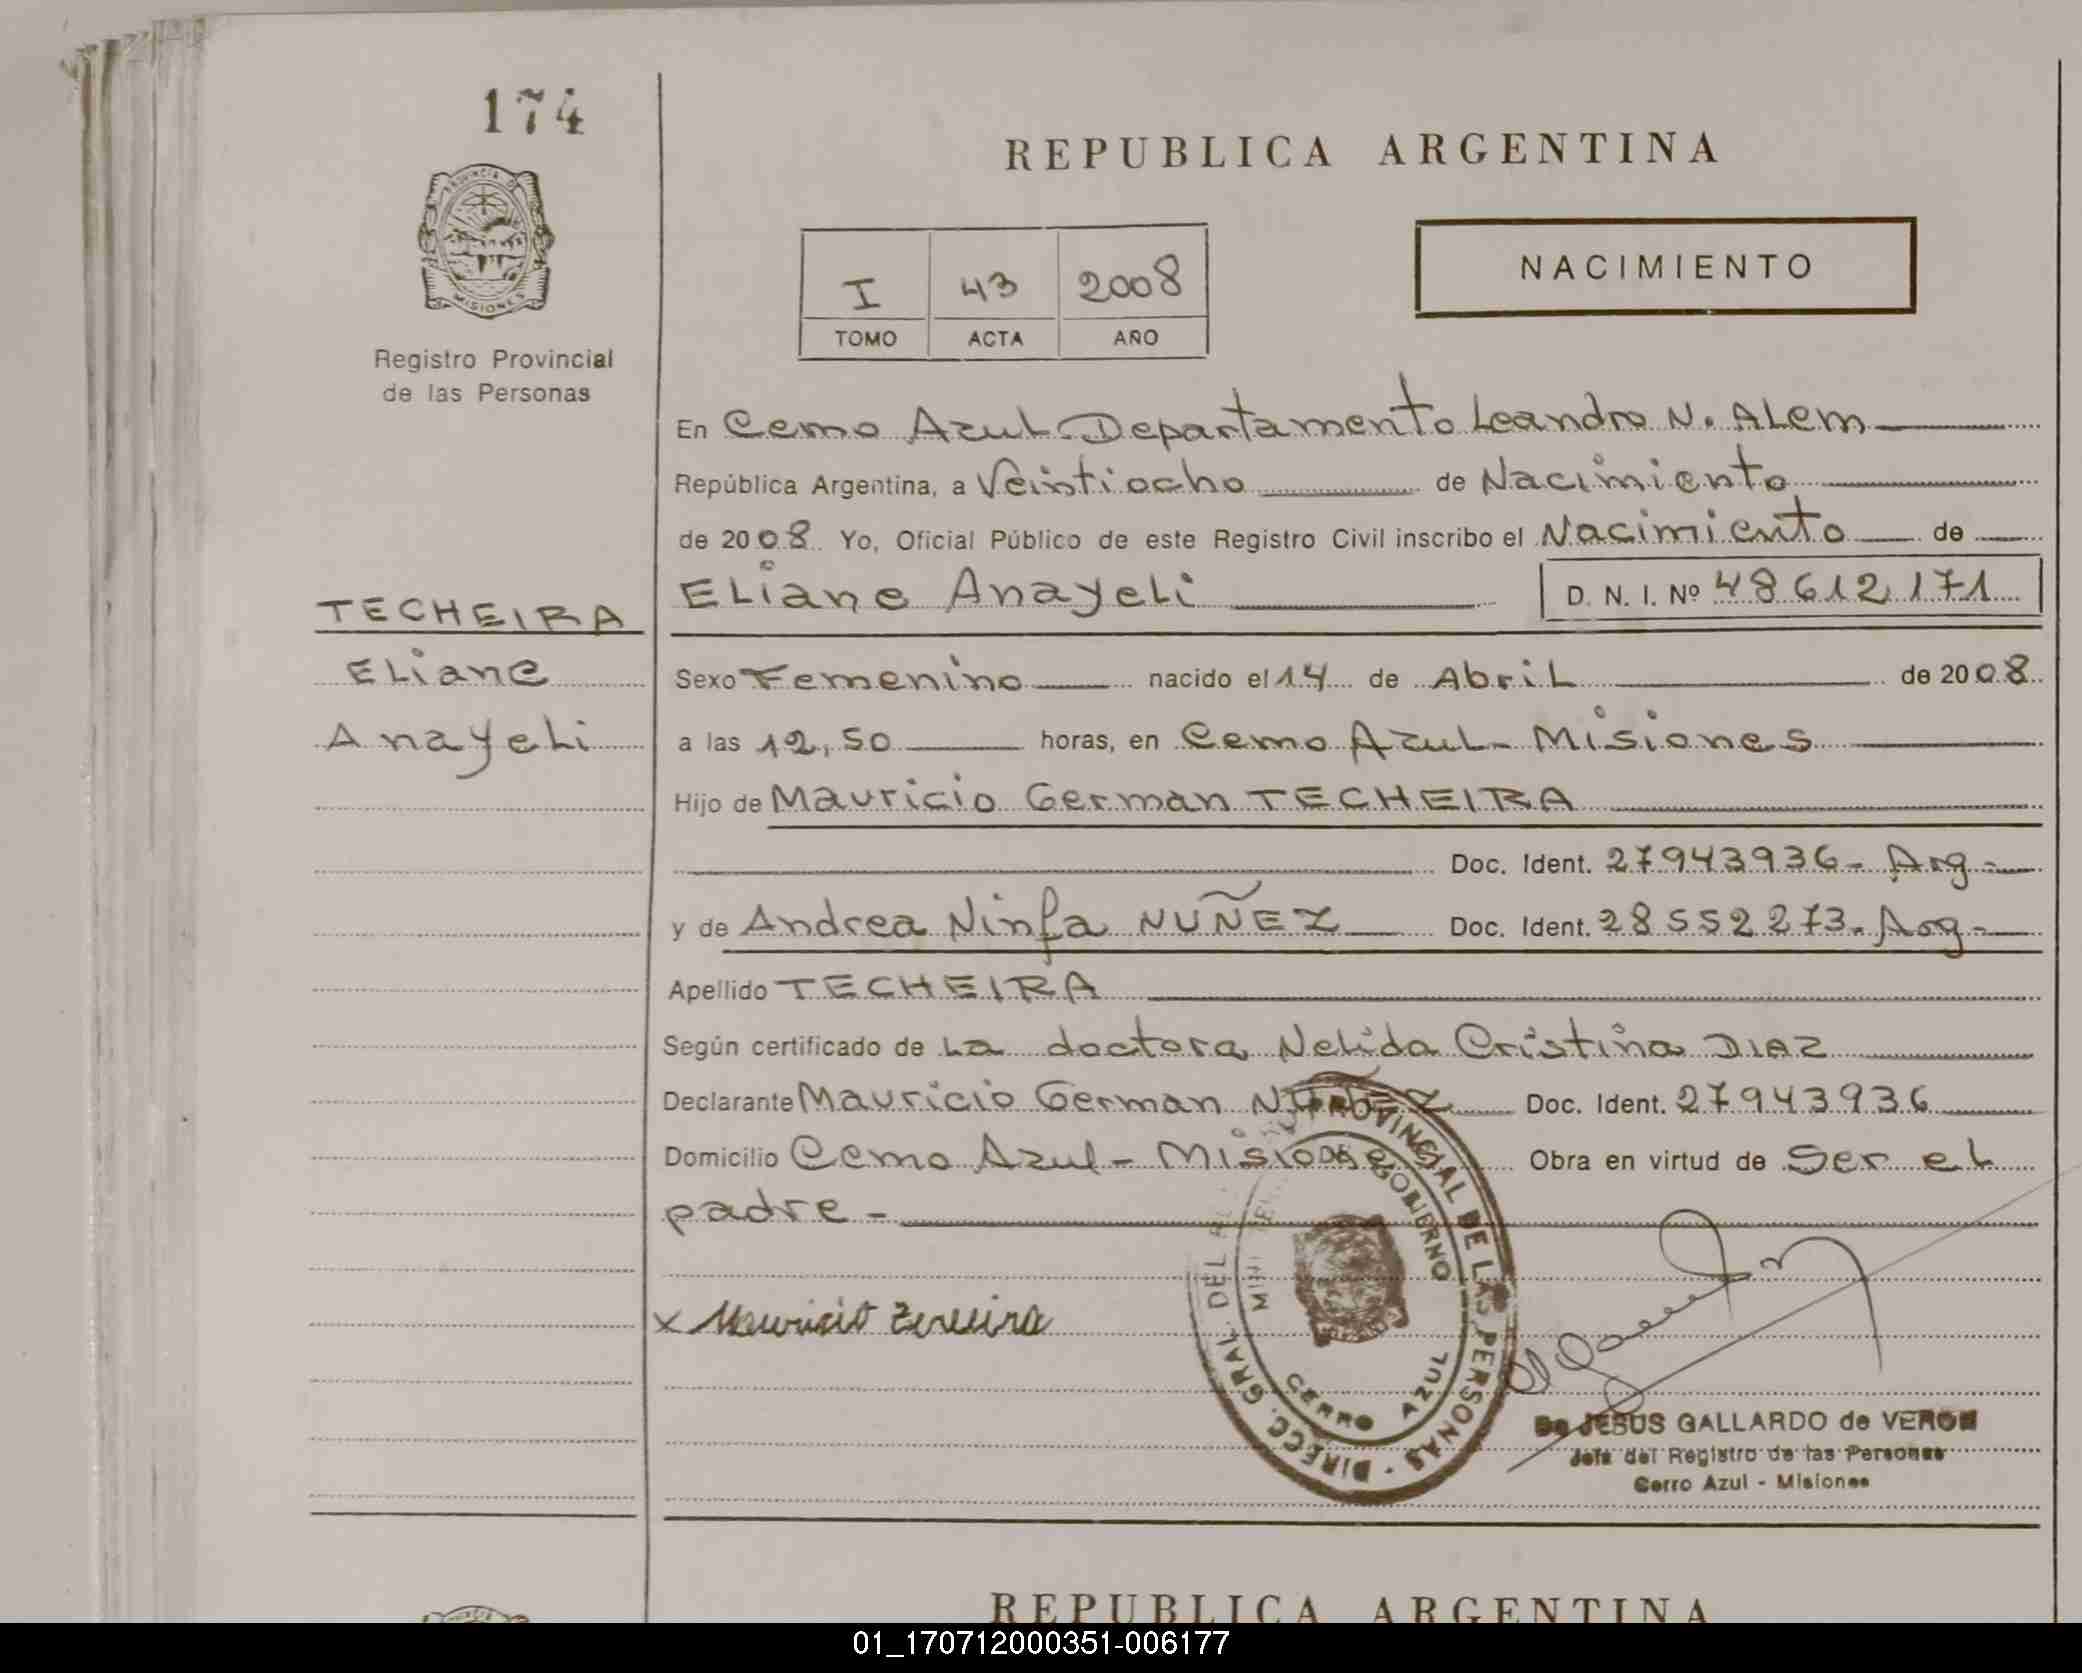 174
REPUBLICA ARGENTINA
PROVINCIA DE MISIONES
Registro Provincial
de las Personas
I 43 2008
TOMO ACTA AÑO
NACIMIENTO
En Cerro Azul - Departamento Leandro N. Alem
República Argentina, a Veintiocho de Nacimiento
de 2008 Yo, Oficial Público de este Registro Civil inscribo el Nacimiento de
Eliane Anayeli D. N. I. Nº 48612171
TECHEIRA
Eliane
Anayeli
Sexo Femenino nacido el 14 de Abril de 2008
a las 12,50 horas, en Cerro Azul - Misiones
Hijo de Mauricio German TECHEIRA
Doc. Ident. 27943936 - Arg -
y de Andrea Ninfa NUÑEZ Doc. Ident. 28552273 - Arg -
Apellido TECHEIRA
Según certificado de La doctora Nelida Cristina DIAZ
Declarante Mauricio German NUÑEZ Doc. Ident. 27943936
Domicilio Cerro Azul - Misiones Obra en virtud de Ser el
padre -
x Mauricio
DIRECC. GRAL. DEL PROVINCIAL DE LAS PERSONAS
DE GOBIERNO
CERRO AZUL
JESUS GALLARDO de VERON
Jefe del Registro de las Personas
Cerro Azul - Misiones
REPUBLICA ARGENTINA
01_170712000351-006177